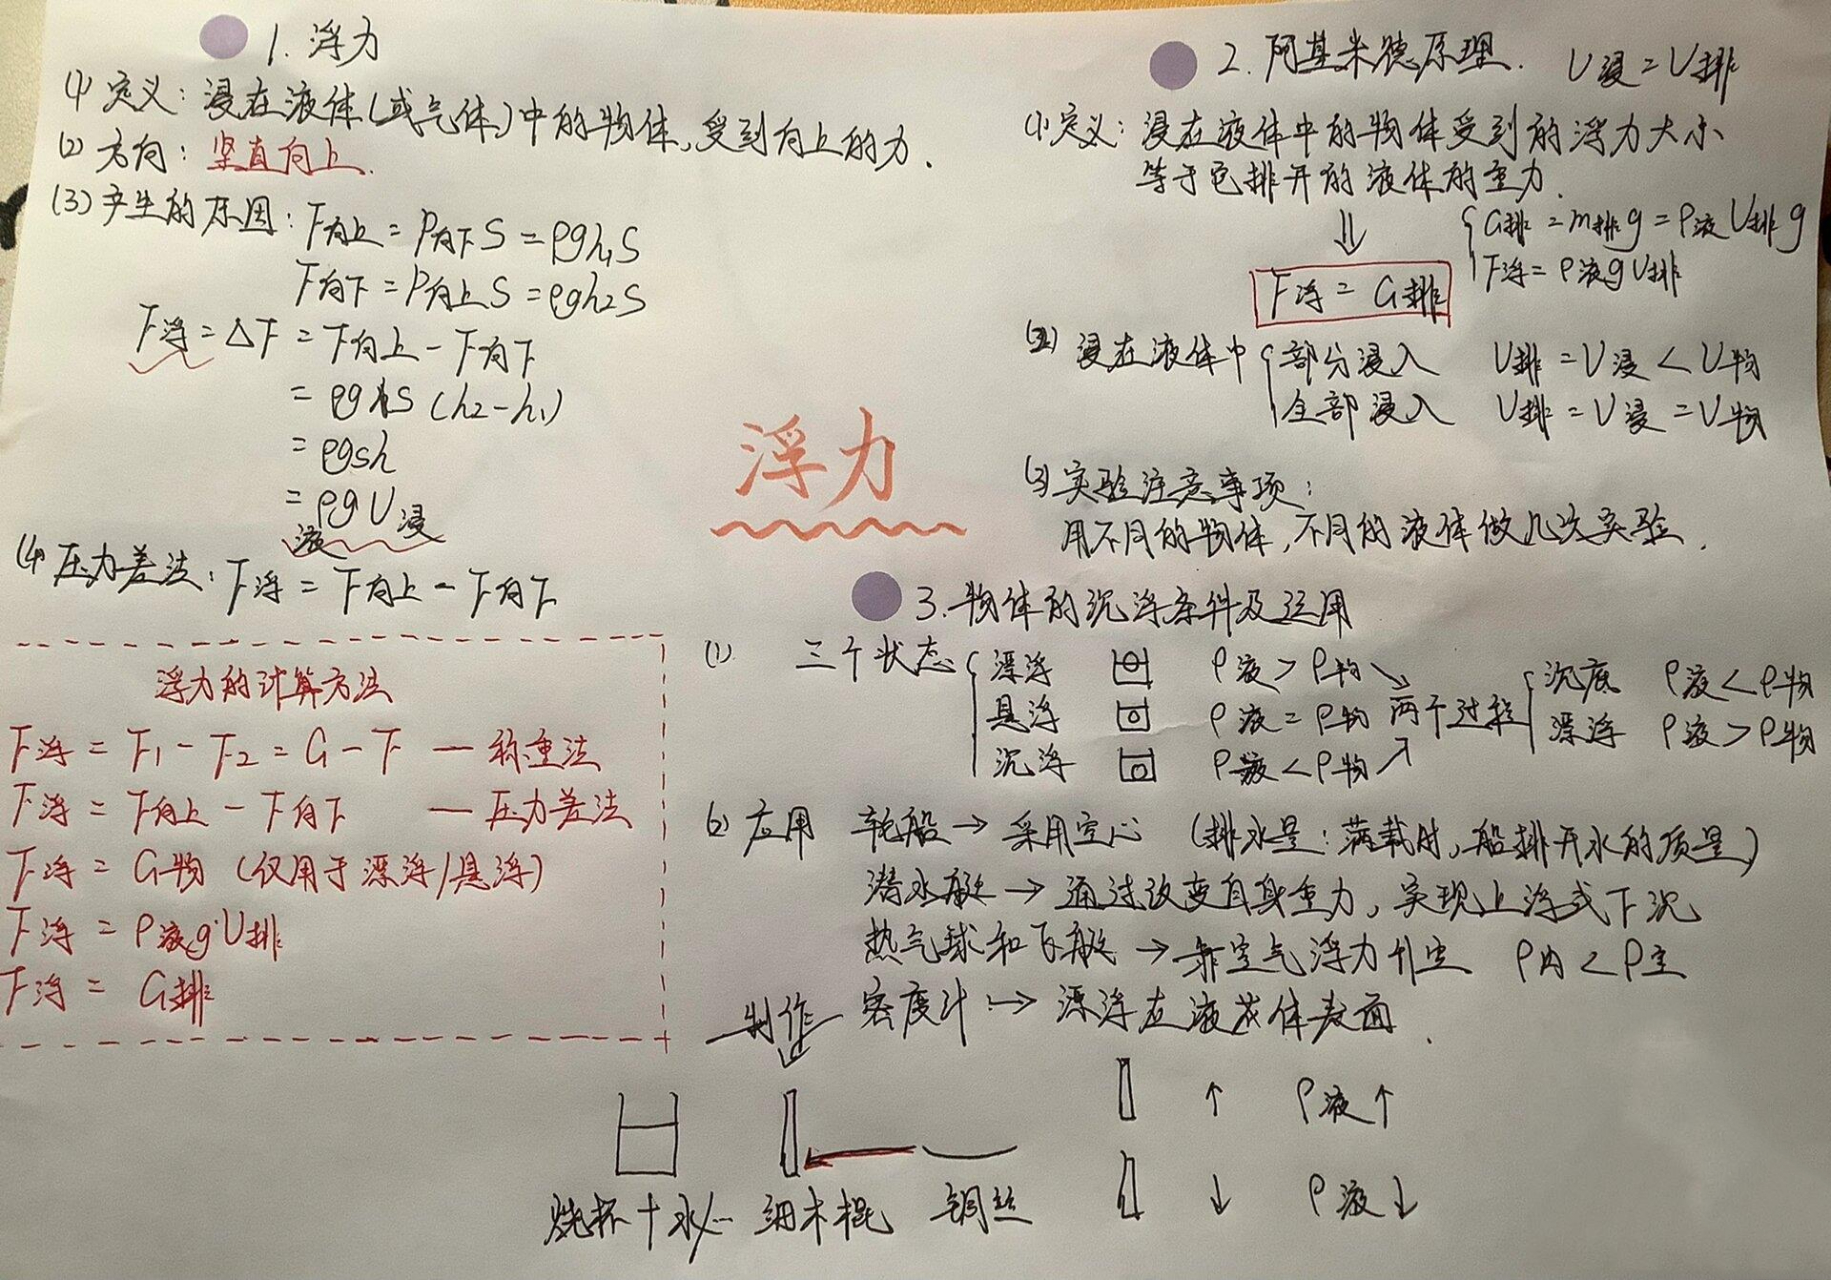 1. 浮力
(1) 定义: 浸在液体(或气体)中的物体,受到向上的力.
(2) 方向: 竖直向上.
(3) 产生的原因: F向上 = P向下 S = ρgh₁S
F向下 = P向上 S = ρgh₂S
F浮 = △F = F向上 - F向下
= ρgS (h₂-h₁)
= ρgsh
= ρ液gV浸
(4) 压力差法: F浮 = F向上 - F向下
浮力的计算方法
F浮 = F₁ - F₂ = G - F — 称重法
F浮 = F向上 - F向下 — 压力差法
F浮 = G物 (仅用于漂浮/悬浮)
F浮 = ρ液g·V排
F浮 = G排
浮力
2. 阿基米德原理. V浸 = V排
(1) 定义: 浸在液体中的物体受到的浮力大小
等于它排开的液体的重力.
⇓
F浮 = G排
G排 = m排g = ρ液V排g
F浮 = ρ液gV排
(2) 浸在液体中 { 部分浸入 V排 = V浸 < V物
全部浸入 V排 = V浸 = V物
(3) 实验注意事项:
用不同的物体,不同的液体做几次实验.
3. 物体的沉浮条件及运用
(1) 三个状态 { 漂浮 ρ液 > ρ物
悬浮 ρ液 = ρ物
沉浮 ρ液 < ρ物
两个过程 { 沉底 ρ液 < ρ物
漂浮 ρ液 > ρ物
(2) 应用 轮船 → 采用空心 (排水量: 满载时,船排开水的质量)
潜水艇 → 通过改变自身重力,实现上浮或下沉
热气球和飞艇 → 靠空气浮力升空 ρ内 < ρ空
密度计: → 漂浮在液体表面.
制作
烧杯 + 水 细木棍 铜丝
↑ ρ液↑
↓ ρ液↓